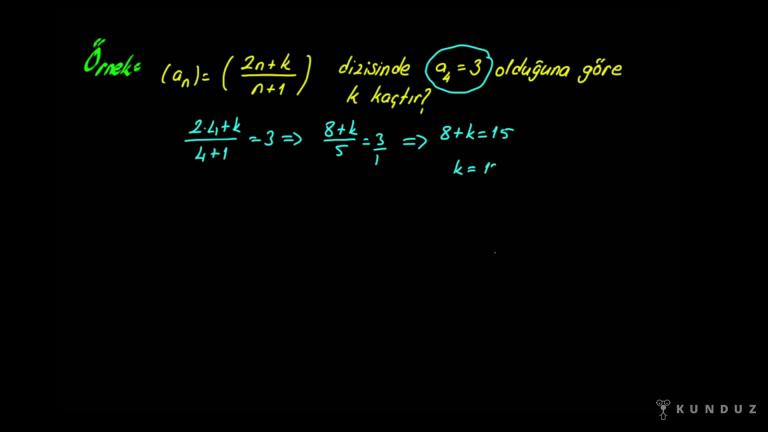 Örnek: (aₙ) = ( (2n+k)/(n+1) ) dizisinde a₄ = 3 olduğuna göre
k kaçtır?
(2.4+k)/(4+1) = 3 => (8+k)/5 = 3/1 => 8+k = 15
k = 1
KUNDUZ